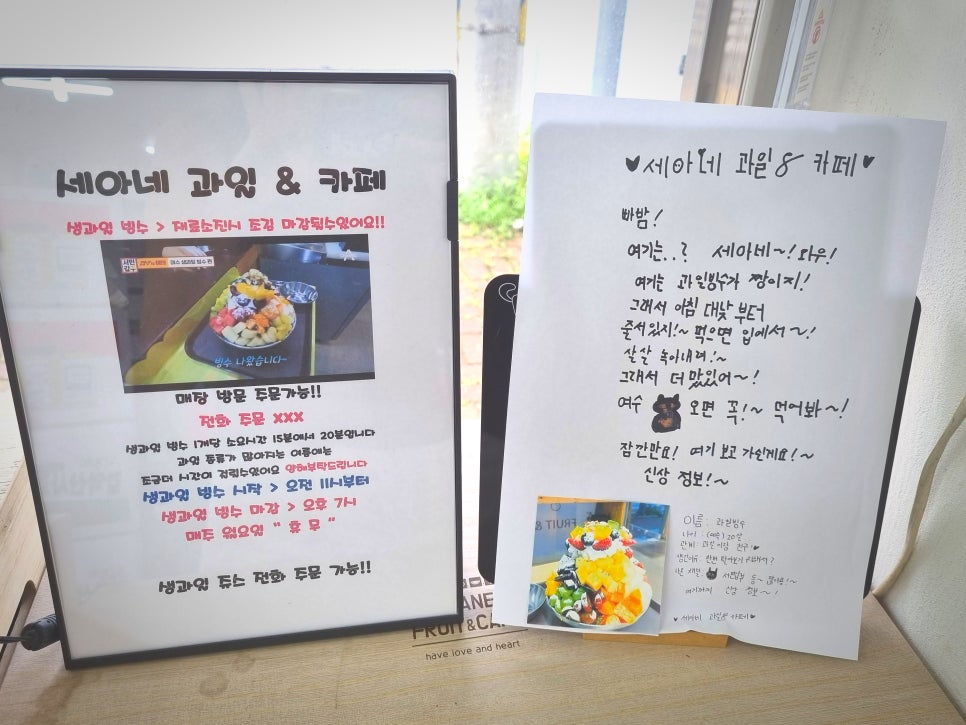 세아네 과일 & 카페
생과일 빙수 > 재료소진시 조깁 마감될수있어요!!
서민갑부
여수 생과일 빙수 편
빙수 나왔습니다~
매장 방문 주문가능!!
전화 주문 xxx
생과일 빙수 1개당 소요시간 15분에서 20분입니다
과일 종류가 많아지는 여름에는
조금더 시간이 걸릴수있어요 양해부탁드립니다
생과일 빙수 시작 > 오전 11시부터
생과일 빙수 마감 > 오후 7시
매주 월요일 " 휴 무 "
생과일 쥬스 전화 주문 가능!!
♥세아네 과일& 카페♥
빠밤!
여기는..? 세아네~! 와우!
여기는 과일빙수가 짱이지!
그래서 아침 대낮 부터
줄서있지!~ 먹으면 입에서~!
살살 녹아내려!~
그래서 더 맛있어~!
여수 오면 꼭!~ 먹어봐~!
잠깐만요! 여기 보고 가실게요!~
신상 정보!~
FRUIT &
이름: 과일빙수
나이: (여수) 20살
♥ 세아네 과일& 카페♥
FRUIT & CA
have love and heart